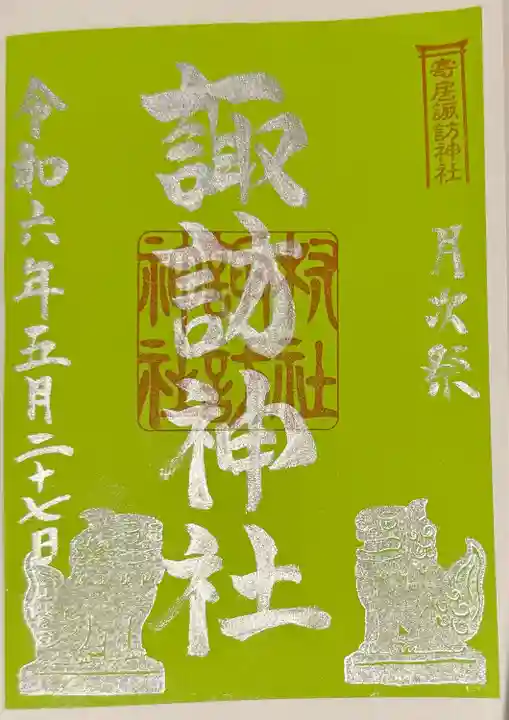 寄居諏訪神社
月次祭
諏訪神社
令和六年五月二十七日